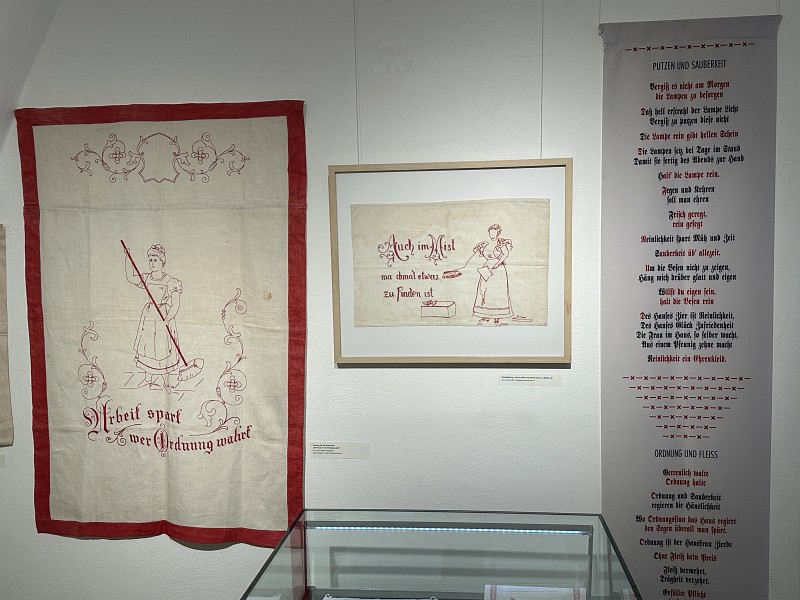 Arbeit spart
wer Ordnung wahrt
Auch im Mist
ma chmal etwas
zu finden ist
PUTZEN UND SAUBERKEIT
Vergiß es nicht am Morgen
die Lampen zu besorgen
Daß hell erstrahl der Lampe Licht
Vergiß zu putzen diese nicht
Die Lampe rein gibt hellen Schein
Die Lampen setz bei Tage im Stand
Damit sie fertig des Abends zur Hand
Halt' die Lampe rein.
Fegen und Kehren
soll man ehren
Frisch geregt,
rein gefegt
Reinlichkeit spart Müh und Zeit
Sauberkeit üb' allezeit.
Um die Besen nicht zu zeigen,
Häng mich drüber glatt und eigen
Willst du eigen sein,
halt die Besen rein
Des Hauses Zier ist Reinlichkeit,
Des Hauses Glück Zufriedenheit
Die Frau im Haus, so selber wacht,
Aus einem Pfennig zehne macht
Reinlichkeit ein Ehrenkleid.
ORDNUNG UND FLEISS
Getreulich walte
Ordnung halte
Ordnung und Sauberkeit
regieren die Häuslichkeit
Wo Ordnungssinn das Haus regiert
den Segen überall man spürt.
Ordnung ist der Hausfrau Zierde
Ohne Fleiß kein Preis
Fleiß vermehrt,
Trägheit verzehrt.
Erfüllte Pflicht